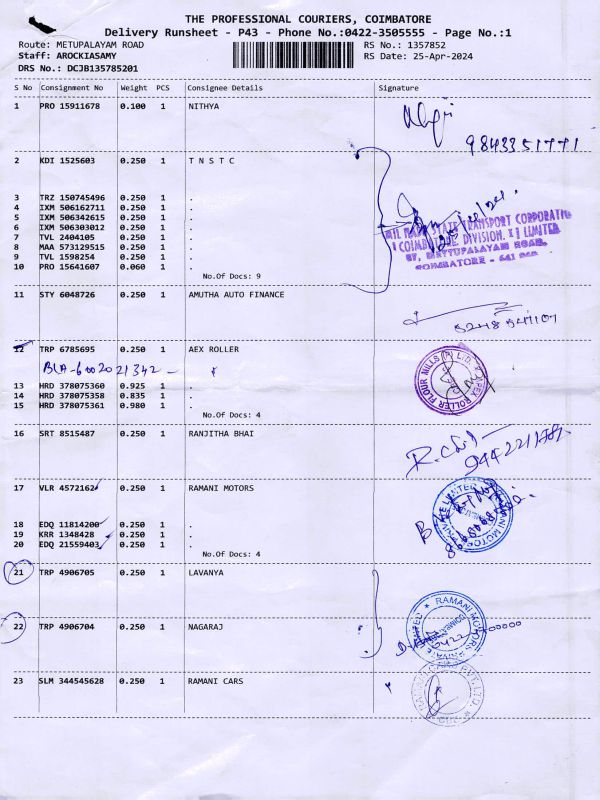 THE PROFESSIONAL COURIERS, COIMBATORE
Delivery Runsheet - P43 - Phone No.:0422-3505555 - Page No.:1
Route: METUPALAYAM ROAD
RS No.: 1357852
Staff: AROCKIASAMY
RS Date: 25-Apr-2024
DRS No.: DCJB135785201
S No Consignment No Weight PCS Consignee Details Signature
1 PRO 15911678 0.100 1 NITHYA
9843351771
2 KDI 1525603 0.250 1 T N S T C
3 TRZ 150745496 0.250 1 .
4 IXM 506162711 0.250 1 .
5 IXM 506342615 0.250 1 .
6 IXM 506303012 0.250 1 .
7 TVL 2404105 0.250 1 .
8 MAA 573129515 0.250 1 .
9 TVL 1598254 0.250 1 .
10 PRO 15641607 0.060 1 .
No.Of Docs: 9
STATE TRANSPORT CORPORATION
DIVISION. II LIMITED
METTUPALAYAM ROAD,
COIMBATORE - 641
11 STY 6048726 0.250 1 AMUTHA AUTO FINANCE
12 TRP 6785695 0.250 1 AEX ROLLER
BLA-6002021342 -
13 HRD 378075360 0.925 1 .
14 HRD 378075358 0.835 1 .
15 HRD 378075361 0.980 1 .
No.Of Docs: 4
APEX ROLLER FLOUR MILLS (P) LTD.
16 SRT 8515487 0.250 1 RANJITHA BHAI
17 VLR 4572162 0.250 1 RAMANI MOTORS
18 EDQ 11814200 0.250 1 .
19 KRR 1348428 0.250 1 .
20 EDQ 21559403 0.250 1 .
No.Of Docs: 4
RAMANI MOTORS PRIVATE LIMITED
21 TRP 4906705 0.250 1 LAVANYA
22 TRP 4906704 0.250 1 NAGARAJ
RAMANI MOTORS PRIVATE LIMITED
23 SLM 344545628 0.250 1 RAMANI CARS
RAMANI CARS PVT. LTD.